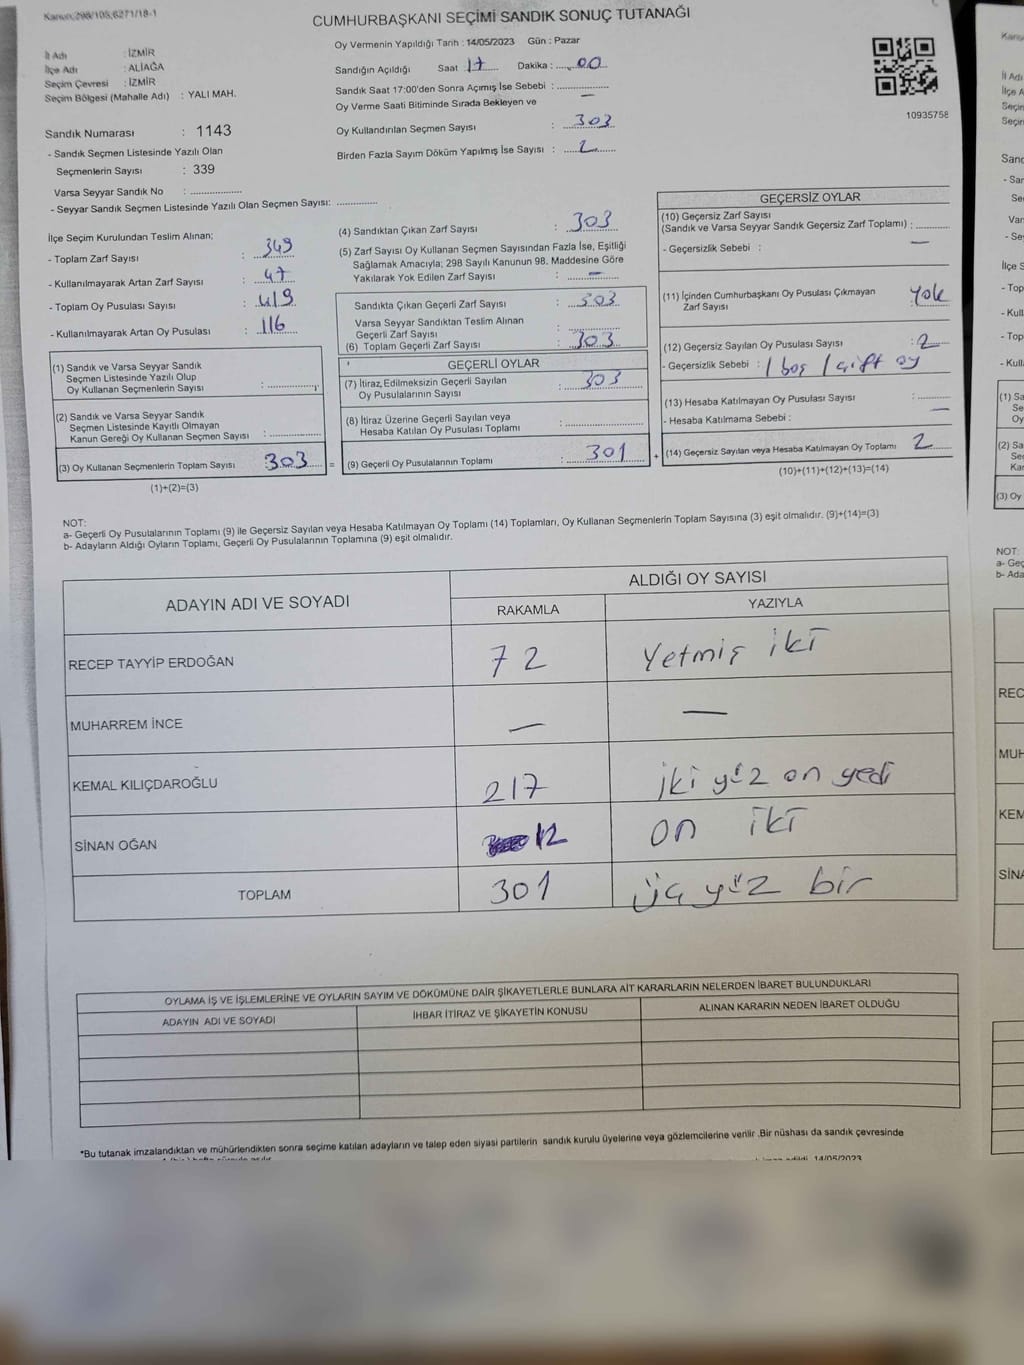 Kanun:298/105,6271/18-1
CUMHURBAŞKANI SEÇİMİ SANDIK SONUÇ TUTANAĞI
İl Adı : İZMİR
İlçe Adı : ALİAĞA
Seçim Çevresi : İZMİR
Seçim Bölgesi (Mahalle Adı) : YALI MAH.
Oy Vermenin Yapıldığı Tarih : 14/05/2023 Gün : Pazar
Sandığın Açıldığı Saat 17 Dakika : 00
Sandık Saat 17:00'den Sonra Açımış İse Sebebi : —
Oy Verme Saati Bitiminde Sırada Bekleyen ve
Oy Kullandırılan Seçmen Sayısı : 303
Birden Fazla Sayım Döküm Yapılmış İse Sayısı : 2
10935758
Sandık Numarası : 1143
- Sandık Seçmen Listesinde Yazılı Olan
Seçmenlerin Sayısı : 339
Varsa Seyyar Sandık No :
- Seyyar Sandık Seçmen Listesinde Yazılı Olan Seçmen Sayısı:
İlçe Seçim Kurulundan Teslim Alınan;
- Toplam Zarf Sayısı : 349
- Kullanılmayarak Artan Zarf Sayısı : 47
- Toplam Oy Pusulası Sayısı : 419
- Kullanılmayarak Artan Oy Pusulası : 116
(1) Sandık ve Varsa Seyyar Sandık
Seçmen Listesinde Yazılı Olup
Oy Kullanan Seçmenlerin Sayısı :
(2) Sandık ve Varsa Seyyar Sandık
Seçmen Listesinde Kayıtlı Olmayan
Kanun Gereği Oy Kullanan Seçmen Sayısı :
(3) Oy Kullanan Seçmenlerin Toplam Sayısı 303 =
(1)+(2)=(3)
(4) Sandıktan Çıkan Zarf Sayısı : 303
(5) Zarf Sayısı Oy Kullanan Seçmen Sayısından Fazla İse, Eşitliği
Sağlamak Amacıyla; 298 Sayılı Kanunun 98. Maddesine Göre
Yakılarak Yok Edilen Zarf Sayısı : —
Sandıkta Çıkan Geçerli Zarf Sayısı : 303
Varsa Seyyar Sandıktan Teslim Alınan
Geçerli Zarf Sayısı :
(6) Toplam Geçerli Zarf Sayısı : 303
GEÇERLİ OYLAR
(7) İtiraz Edilmeksizin Geçerli Sayılan
Oy Pusulalarının Sayısı : 303
(8) İtiraz Üzerine Geçerli Sayılan veya
Hesaba Katılan Oy Pusulası Toplamı :
(9) Geçerli Oy Pusulalarının Toplamı : 301 +
GEÇERSİZ OYLAR
(10) Geçersiz Zarf Sayısı
(Sandık ve Varsa Seyyar Sandık Geçersiz Zarf Toplamı) :
- Geçersizlik Sebebi : —
(11) İçinden Cumhurbaşkanı Oy Pusulası Çıkmayan
Zarf Sayısı Yok
(12) Geçersiz Sayılan Oy Pusulası Sayısı : 2
- Geçersizlik Sebebi : 1 boş 1 çift oy
(13) Hesaba Katılmayan Oy Pusulası Sayısı :
- Hesaba Katılmama Sebebi : —
(14) Geçersiz Sayılan veya Hesaba Katılmayan Oy Toplamı 2
(10)+(11)+(12)+(13)=(14)
NOT:
a- Geçerli Oy Pusulalarının Toplamı (9) ile Geçersiz Sayılan veya Hesaba Katılmayan Oy Toplamı (14) Toplamları, Oy Kullanan Seçmenlerin Toplam Sayısına (3) eşit olmalıdır. (9)+(14)=(3)
b- Adayların Aldığı Oyların Toplamı, Geçerli Oy Pusulalarının Toplamına (9) eşit olmalıdır.
ADAYIN ADI VE SOYADI
ALDIĞI OY SAYISI
RAKAMLA YAZIYLA
RECEP TAYYİP ERDOĞAN 72 Yetmiş iki
MUHARREM İNCE — —
KEMAL KILIÇDAROĞLU 217 iki yüz on yedi
SİNAN OĞAN 12 on iki
TOPLAM 301 üç yüz bir
OYLAMA İŞ VE İŞLEMLERİNE VE OYLARIN SAYIM VE DÖKÜMÜNE DAİR ŞİKAYETLERLE BUNLARA AİT KARARLARIN NELERDEN İBARET BULUNDUKLARI
ADAYIN ADI VE SOYADI İHBAR İTİRAZ VE ŞİKAYETİN KONUSU ALINAN KARARIN NEDEN İBARET OLDUĞU
*Bu tutanak imzalandıktan ve mühürlendikten sonra seçime katılan adayların ve talep eden siyasi partilerin sandık kurulu üyelerine veya gözlemcilerine verilir .Bir nüshası da sandık çevresinde
14/05/2023